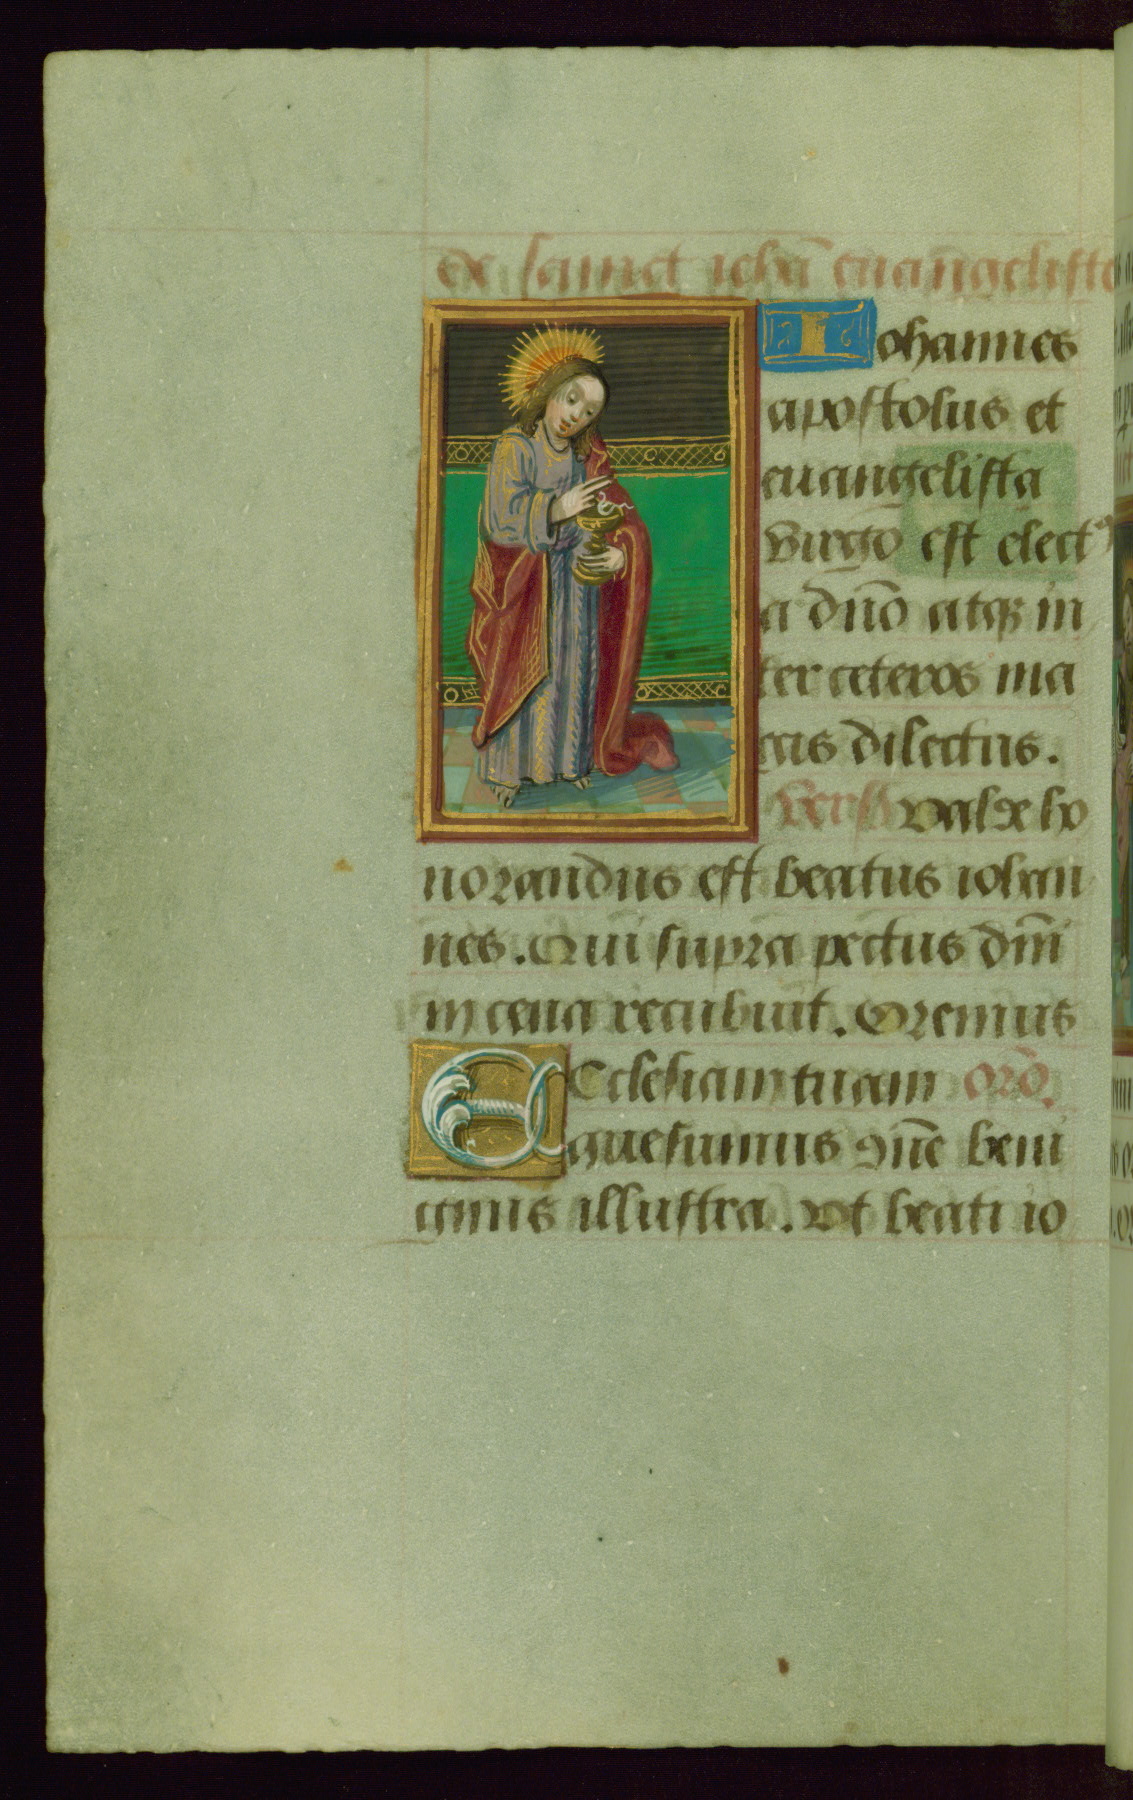 de sainct ichā euāngeliste
Iohannes
apostolus et
euangelista
virgo est elect9
a dn̄o atqꝫ in
ter ceteros ma
gis dilectus.
Vers9 valde ho
norandus est beatus iohan
nes. Qui supra pectus dn̄i
in cena recubuit. Oremus
Ecclesiam tuam orō.
quesumus dn̄e beni
gnus illustra. vt beati io